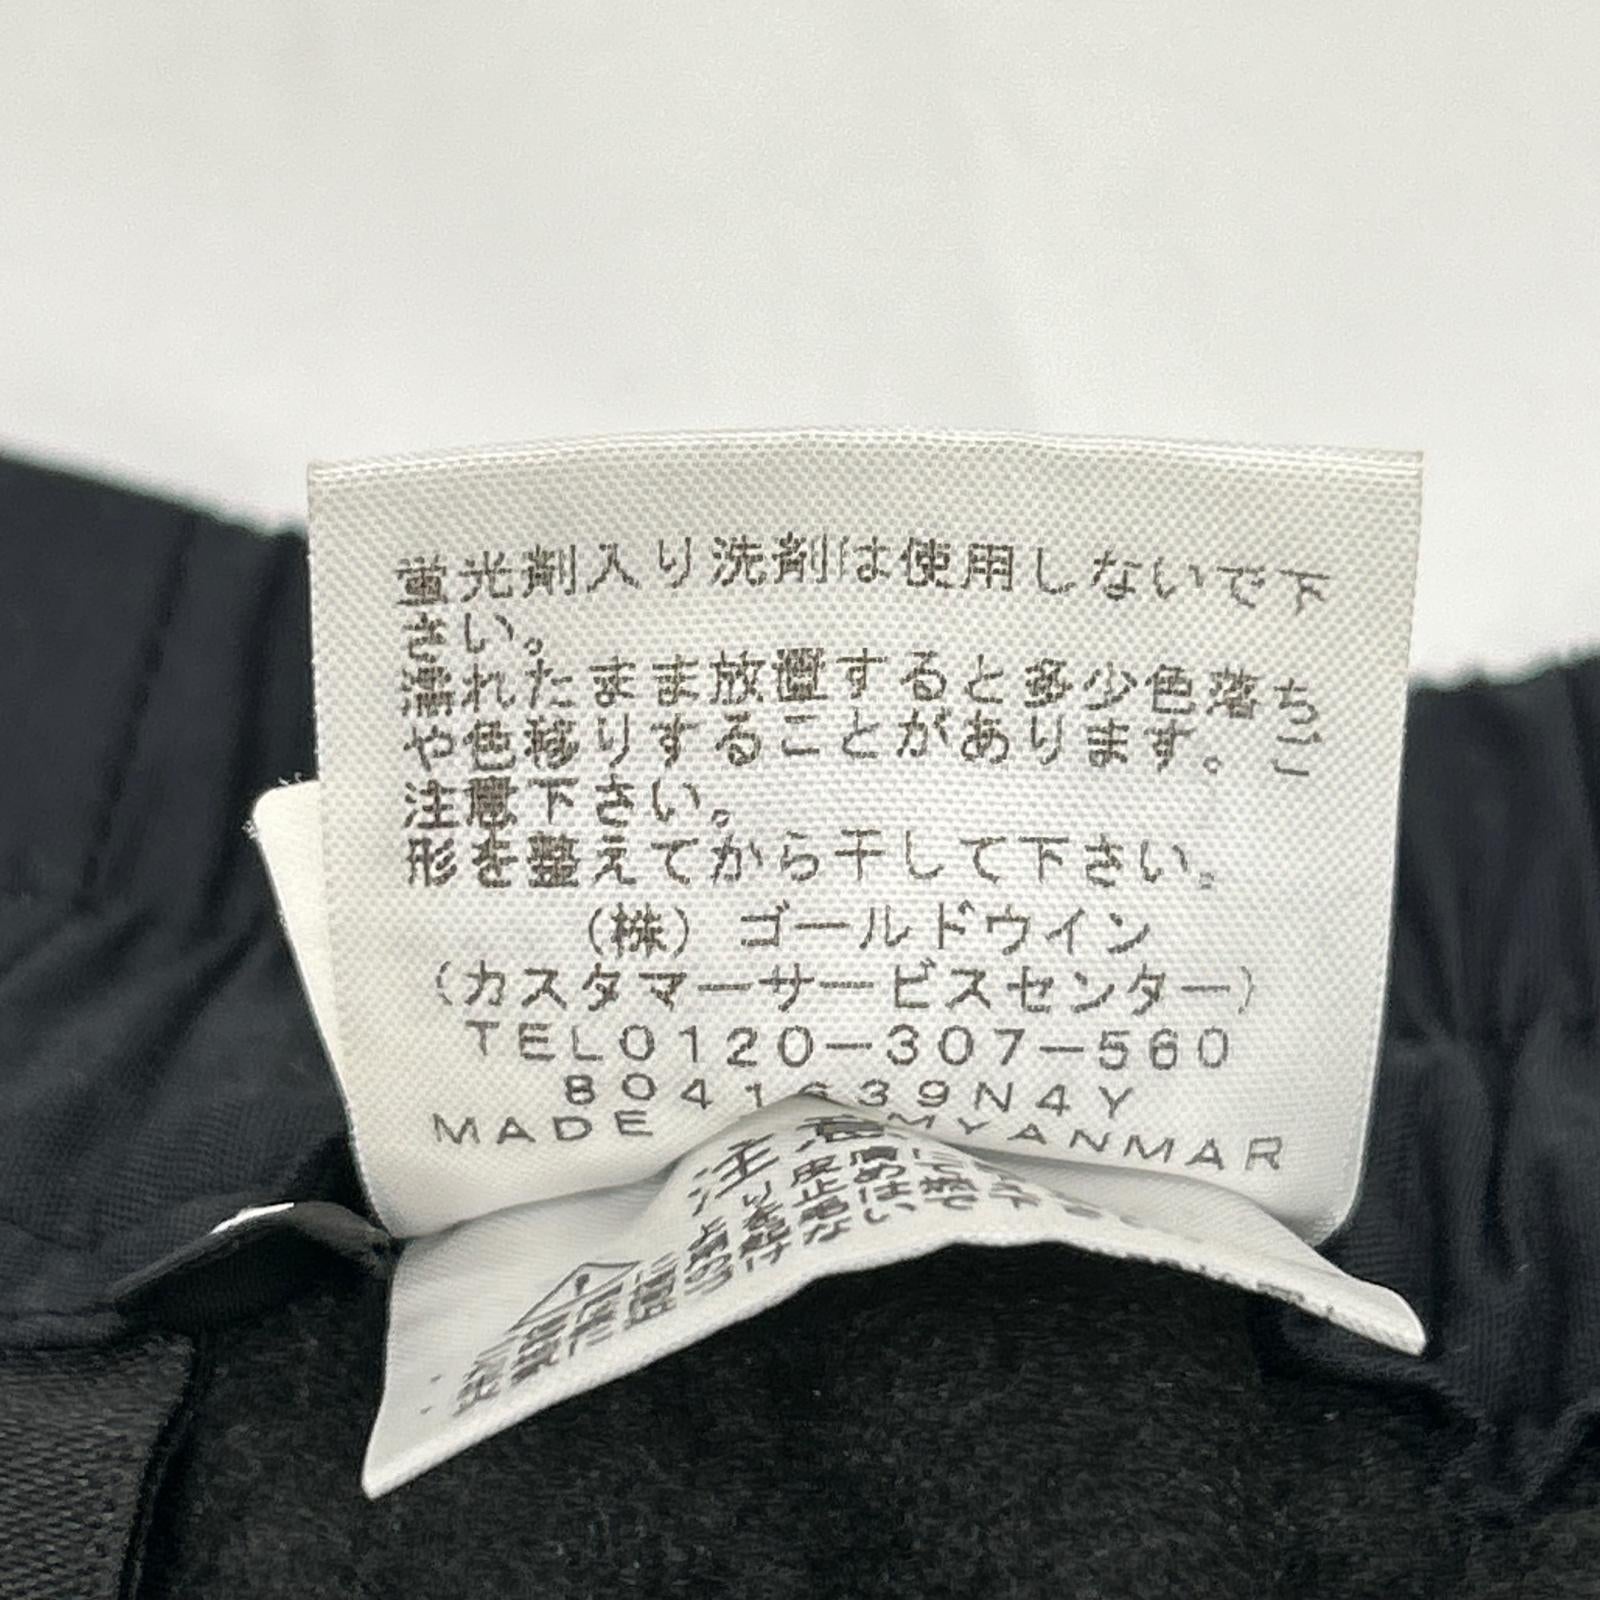 蛍光剤入り洗剤は使用しないで下
さい。
濡れたまま放置すると多少色落ち
や色移りすることがあります。ご
注意下さい。
形を整えてから干して下さい。
(株) ゴールドウイン
(カスタマーサービスセンター)
TEL0120-307-560
8041639N4Y
MADE MYANMAR
注意